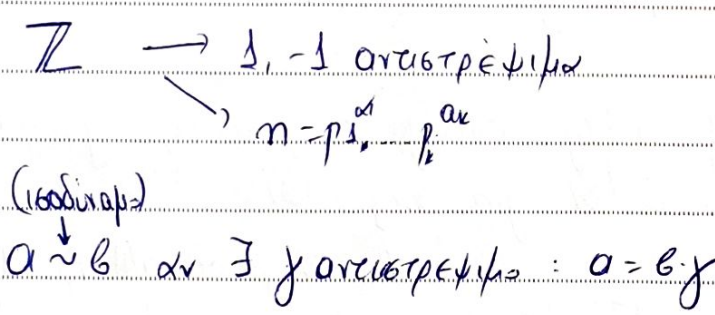 ℤ → 1, -1 αντιστρέψιμα
↘ n = p₁^α1 ... pₖ^ακ
(ισοδύναμο)
↓
a ~ b αν ∃ γ αντιστρέψιμο : a = b·γ